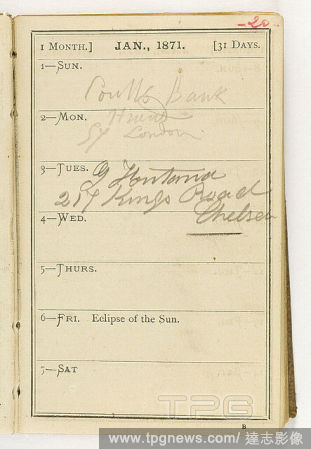 -20-
1 MONTH.] JAN., 1871. [31 DAYS.
1—SUN.
Coutts Bank
2—MON.
London
3—TUES. G Fontana
217 Kings Road
Chelsea
4—WED.
5—THURS.
6—FRI. Eclipse of the Sun.
7—SAT
B
TPG
www.tpgnews.com/達志影像